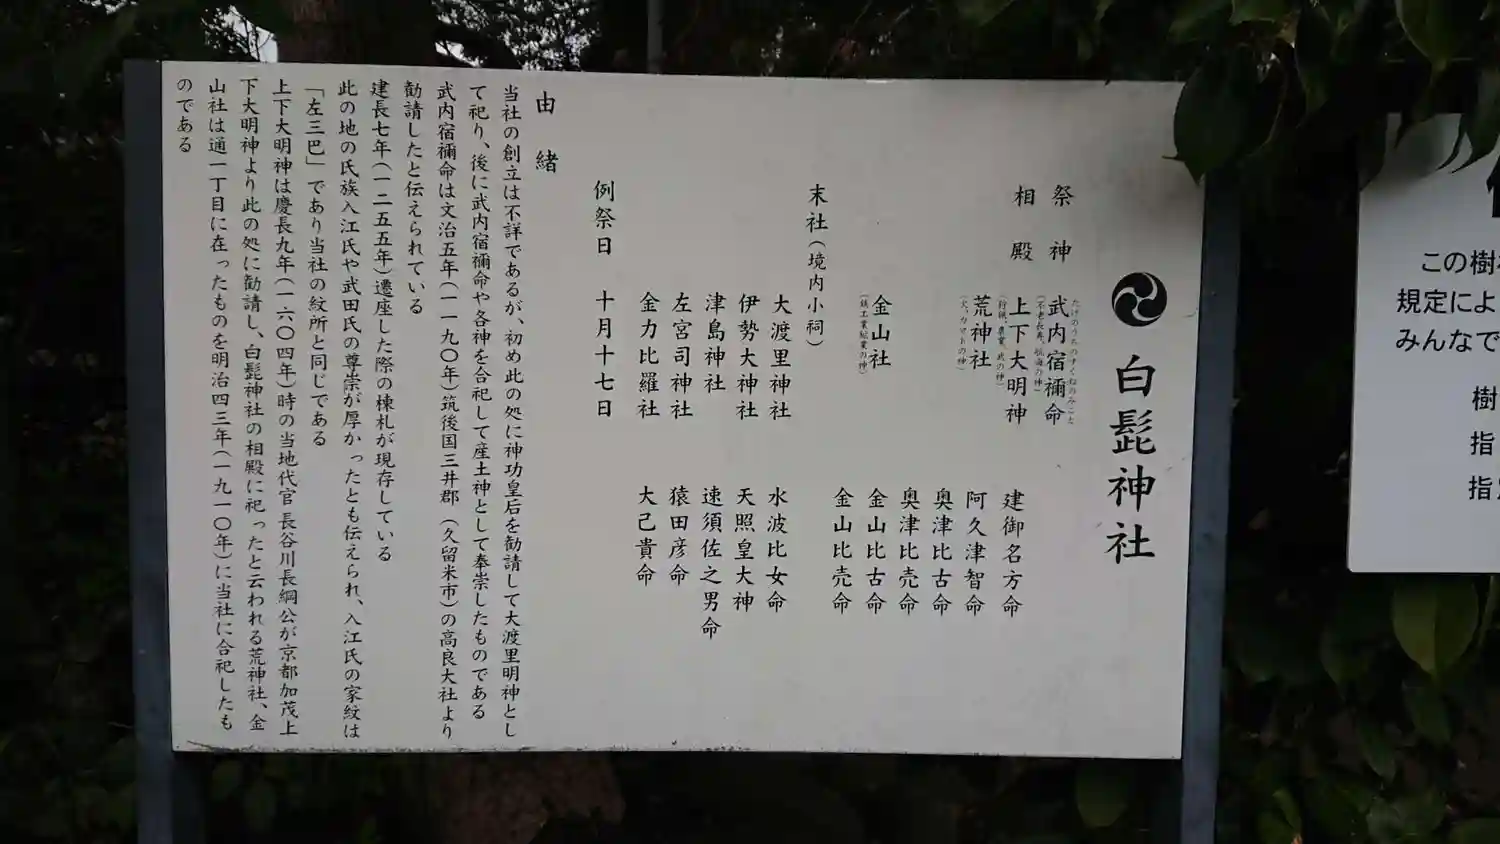 白髭神社
祭神　武内宿禰命
たけのうちのすくねのみこと
（不老長寿、航海の神）
相殿　上下大明神　建御名方命
（狩猟、農業、武の神）
荒神社　阿久津智命
（火、カマドの神）
奥津比古命
奥津比売命
金山社　金山比古命
（鉄工業鉱業の神）
金山比売命
末社（境内小祠）
大渡里神社　水波比女命
伊勢大神社　天照皇大神
津島神社　速須佐之男命
左宮司神社　猿田彦命
金力比羅社　大己貴命
例祭日　十月十七日
由緒
当社の創立は不詳であるが、初め此の処に神功皇后を勧請して大渡里明神とし
て祀り、後に武内宿禰命や各神を合祀して産土神として奉崇したものである
武内宿禰命は文治五年（一一九〇年）筑後国三井郡（久留米市）の高良大社より
勧請したと伝えられている
建長七年（一二五五年）遷座した際の棟札が現存している
此の地の氏族入江氏や武田氏の尊崇が厚かったとも伝えられ、入江氏の家紋は
「左三巴」であり当社の紋所と同じである
上下大明神は慶長九年（一六〇四年）時の当地代官長谷川長綱公が京都加茂上
下大明神より此の処に勧請し、白髭神社の相殿に祀ったと云われる荒神社、金
山社は通一丁目に在ったものを明治四三年（一九一〇年）に当社に合祀したも
のである
この樹
規定によ
みんなで
樹
指
指